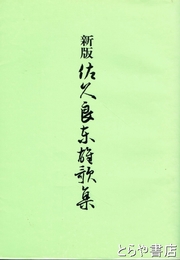 新版 佐久良東雄歌集
とらや書店